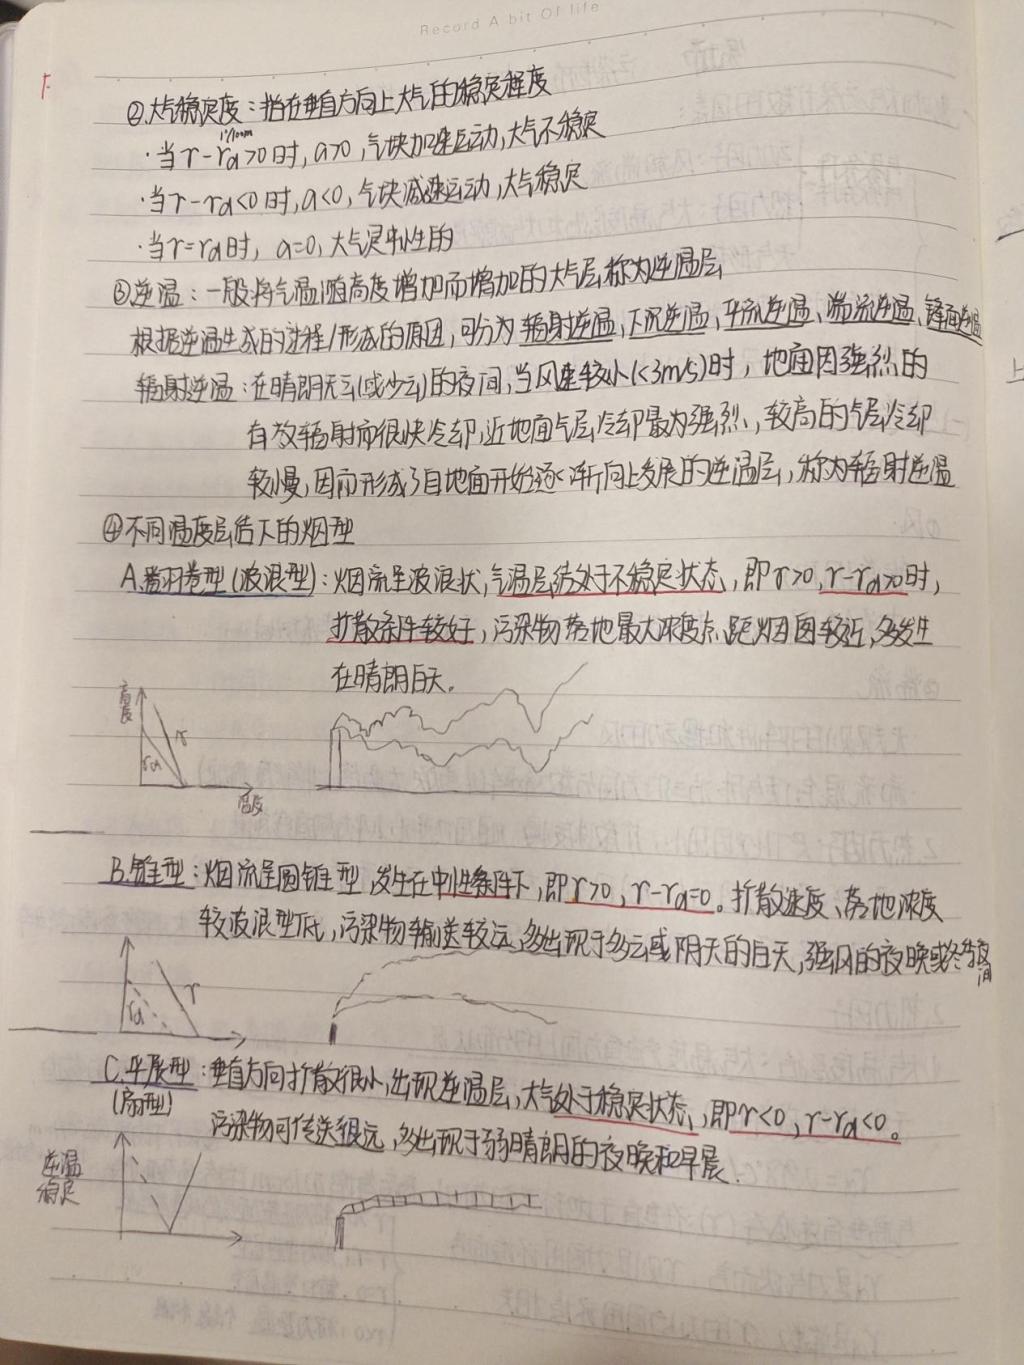 Record A bit Of life
②大气稳定度：指在垂直方向上大气的稳定程度
1℃/100m
·当r-rd>0时，a>0，气块加速运动，大气不稳定
·当r-rd<0时，a<0，气块减速运动，大气稳定
·当r=rd时，a=0，大气是中性的
③逆温：一般将气温随高度增加而增加的大气层称为逆温层
根据逆温生成的过程/形成的原因，可分为辐射逆温、下沉逆温、平流逆温、湍流逆温、锋面逆温
辐射逆温：在晴朗无云(或少云)的夜间，当风速较小(<3m/s)时，地面因强烈的
有效辐射而很快冷却，近地面气层冷却最为强烈，较高的气层冷却
较慢，因而形成了自地面开始逐渐向上发展的逆温层，称为辐射逆温
④不同温度层结下的烟型
A.翻卷型(波浪型)：烟流呈波浪状，气温层结处于不稳定状态，即r>0，r-rd>0时，
扩散条件较好，污染物落地最大浓度点距烟囱较近，多发生
在晴朗白天。
高度
r
rd
温度
B.锥型：烟流呈圆锥型，发生在中性条件下，即r>0，r-rd=0。扩散速度、落地浓度
较波浪型低，污染物输送较远，多出现于多云或阴天的白天，强风的夜晚或冬季夜间
r
rd
C.平展型：垂直方向扩散很小，出现逆温层，大气处于稳定状态，即r<0，r-rd<0。
(扇型)
污染物可传送很远，多出现于弱晴朗的夜晚和早晨.
逆温
稳定